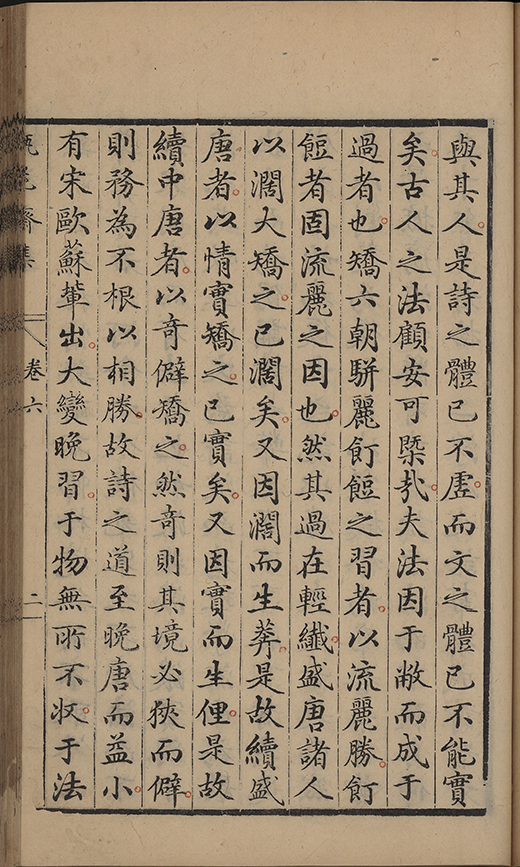 與其人是詩之體已不虛而文之體已不能實
矣古人之法顧安可槩㢤夫法因于敝而成于
過者也矯六朝駢麗飣餖之習者以流麗勝飣
餖者固流麗之因也然其過在輕纖盛唐諸人
以濶大矯之已濶矣又因濶而生莽是故續盛
唐者以情實矯之已實矣又因實而生俚是故
續中唐者以竒僻矯之然竒則其境必狹而僻
則務為不根以相勝故詩之道至晚唐而益小
有宋歐蘇輩出大變晚習于物無所不收于法
卷六
二